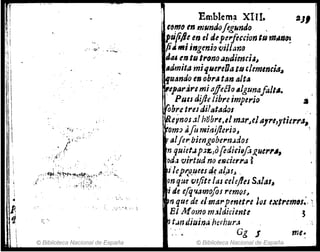 Emblema XIII. 237
como en mundo segundo
pusiste en el de perfeccion tu mano:
si a mi ingenio villano
das en tu trono audiencia,
admita mi querella tu clemencia,
quando en obra tan alta
reparàre mi affecto alguna falta.
Pues diste libre imperio 2
sobre tres dilatados
Reynos al hõbre, el mar, el ayre, y tierra,
tomo à su ministerio,
y al ser bien gobernados
en quieta paz, ò sediciosa guerra,
toda virtud no encierra
si le pequetes de alas,
con que visite las celestes Salas,
ni de esquamosos remos,
con que de el mar penetre los extremos.
El Momo maldiciente 3
tan diuina hechura
Gg 5 me-
© Biblioteca Nacional de España
© Biblioteca Nacional de España